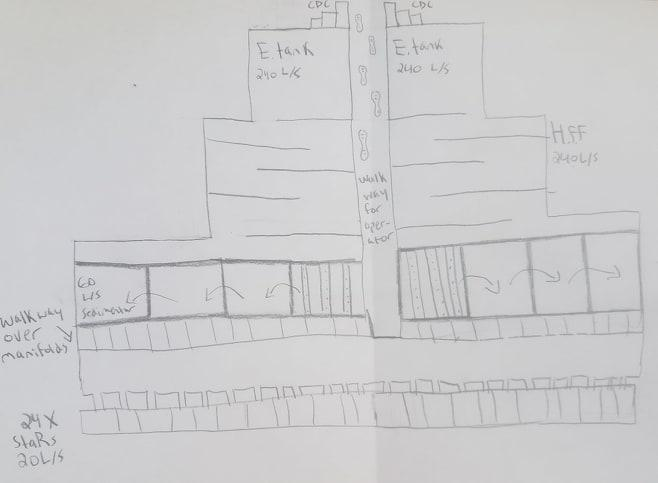 CDC
CDC
E.tank
240 L/s
E.tank
240 L/s
H.ff
240L/s
walk
way
for
oper-
ator
60
L/s
Sedimentor
walkway
over
manifolds
24X
StaRs
20L/s